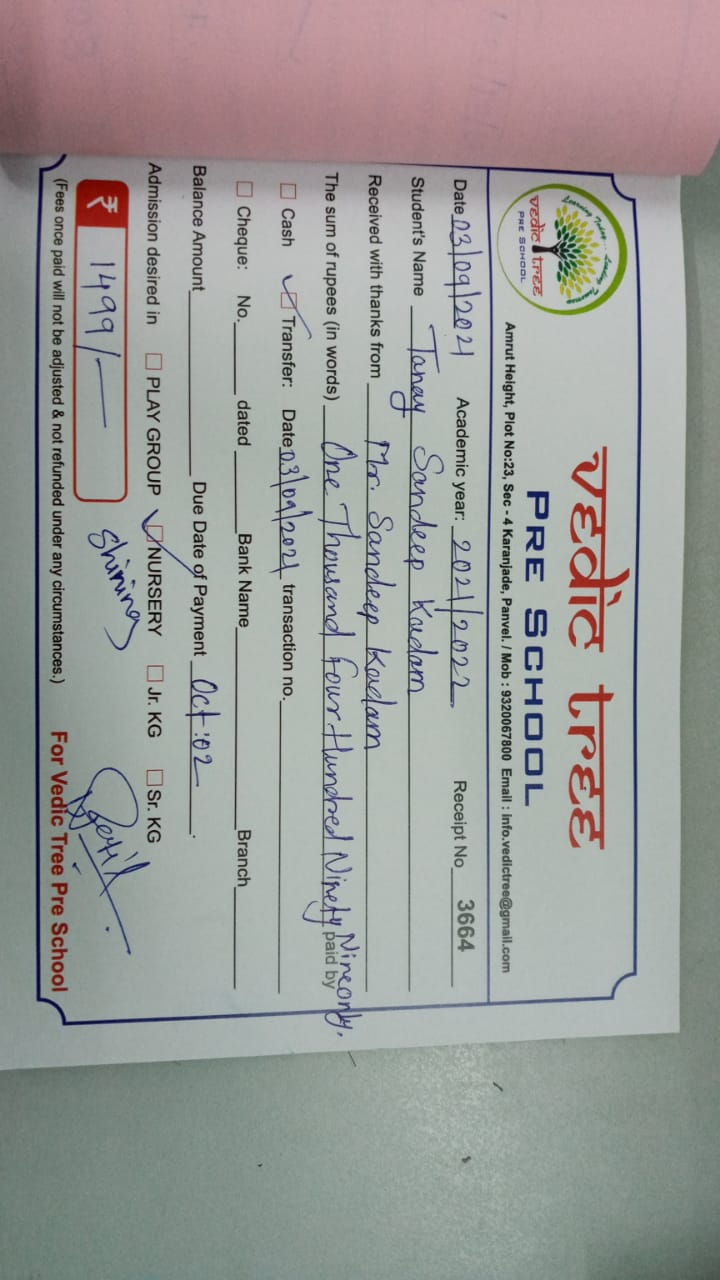 Learning Today... Leading Tomorrow
vedic tree
PRE SCHOOL
vedic tree
PRE SCHOOL
Amrut Height, Plot No:23, Sec - 4 Karanjade, Panvel. / Mob : 9320067800 Email : info.vedictree@gmail.com
Date 03/09/2021 Academic year: 2021/2022 Receipt No 3664
Student's Name Tanay Sandeep Kadam
Received with thanks from Mr. Sandeep Kadam
The sum of rupees (in words) One Thousand Four Hundred Ninety Nine only. paid by
Cash Transfer: Date 03/09/2021 transaction no.
Cheque: No. dated Bank Name Branch
Balance Amount Due Date of Payment Oct:02
Admission desired in PLAY GROUP NURSERY Jr. KG Sr. KG
₹ 1499/- Shining
(Fees once paid will not be adjusted & not refunded under any circumstances.) For Vedic Tree Pre School